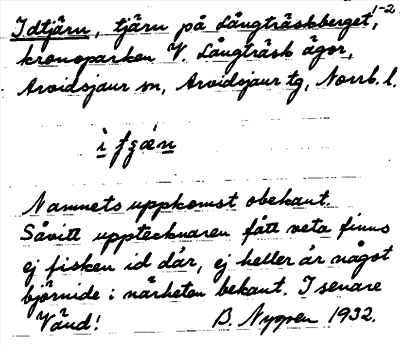 Idtjärn, tjärn på Långträskberget, 1-2
kronoparken V. Långträsk ägor,
Arvidsjaur sn, Arvidsjaur tg, Norrb. l.
Namnets uppkomst obekant.
Såvitt upptecknaren fått veta finns
ej fisken id där, ej heller är något
björnide i närheten bekant. I senare
Vänd! B. Nygren 1932.